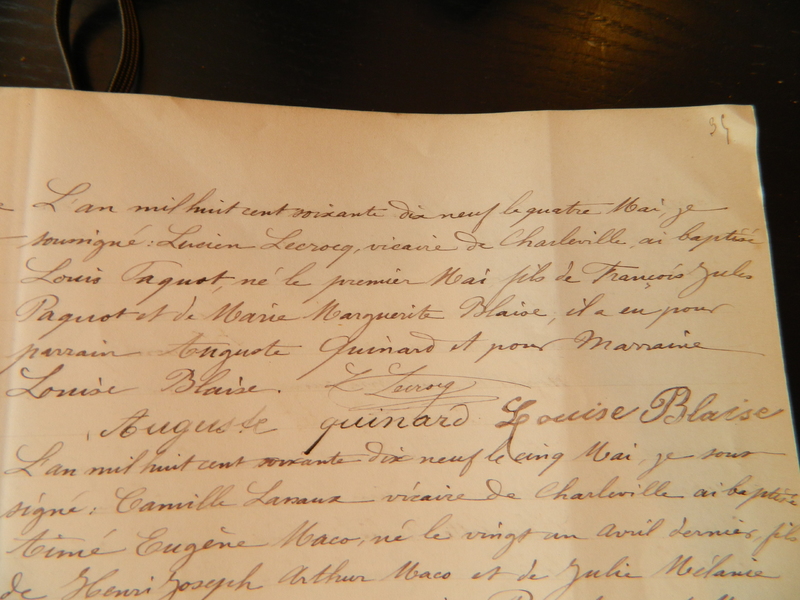 34
L'an mil huit cent soixante dix neuf le quatre Mai, je
soussigné: Lucien Lecrocq, vicaire de Charleville, ai baptisé
Louis Paquot, né le premier Mai, fils de François Jules
Paquot et de Marie Marguerite Blaise, il a eu pour
parrain Auguste Guinard et pour Marraine
Louise Blaise. L Lecrocq
Auguste guinard Louise Blaise
L'an mil huit cent soixante dix neuf le cinq Mai, je sous
signé: Camille Lassaux vicaire de Charleville ai baptisé
Aimé Eugène Maco, né le vingt un avril dernier, fils
de Henri Joseph Arthur Maco et de Julie Mélanie